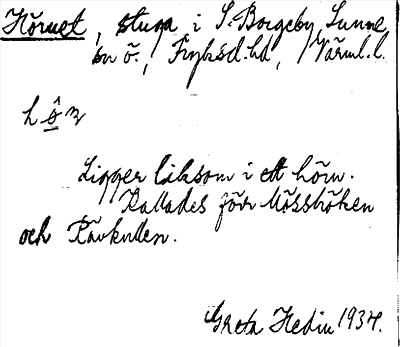 Hörnet, stuga i S. Borgeby, Sunne
sn ö., Fryksd. hd, Värml. l.
Ligger liksom i ett hörn.
Kallades förr Mosshöken
och Rävkullen.
Greta Hedin 1934.